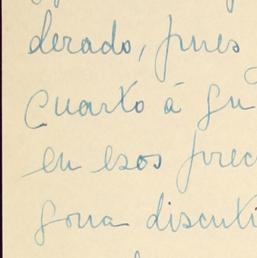 derado, pues
Cuarto á gu
en esos prec
gona discuti